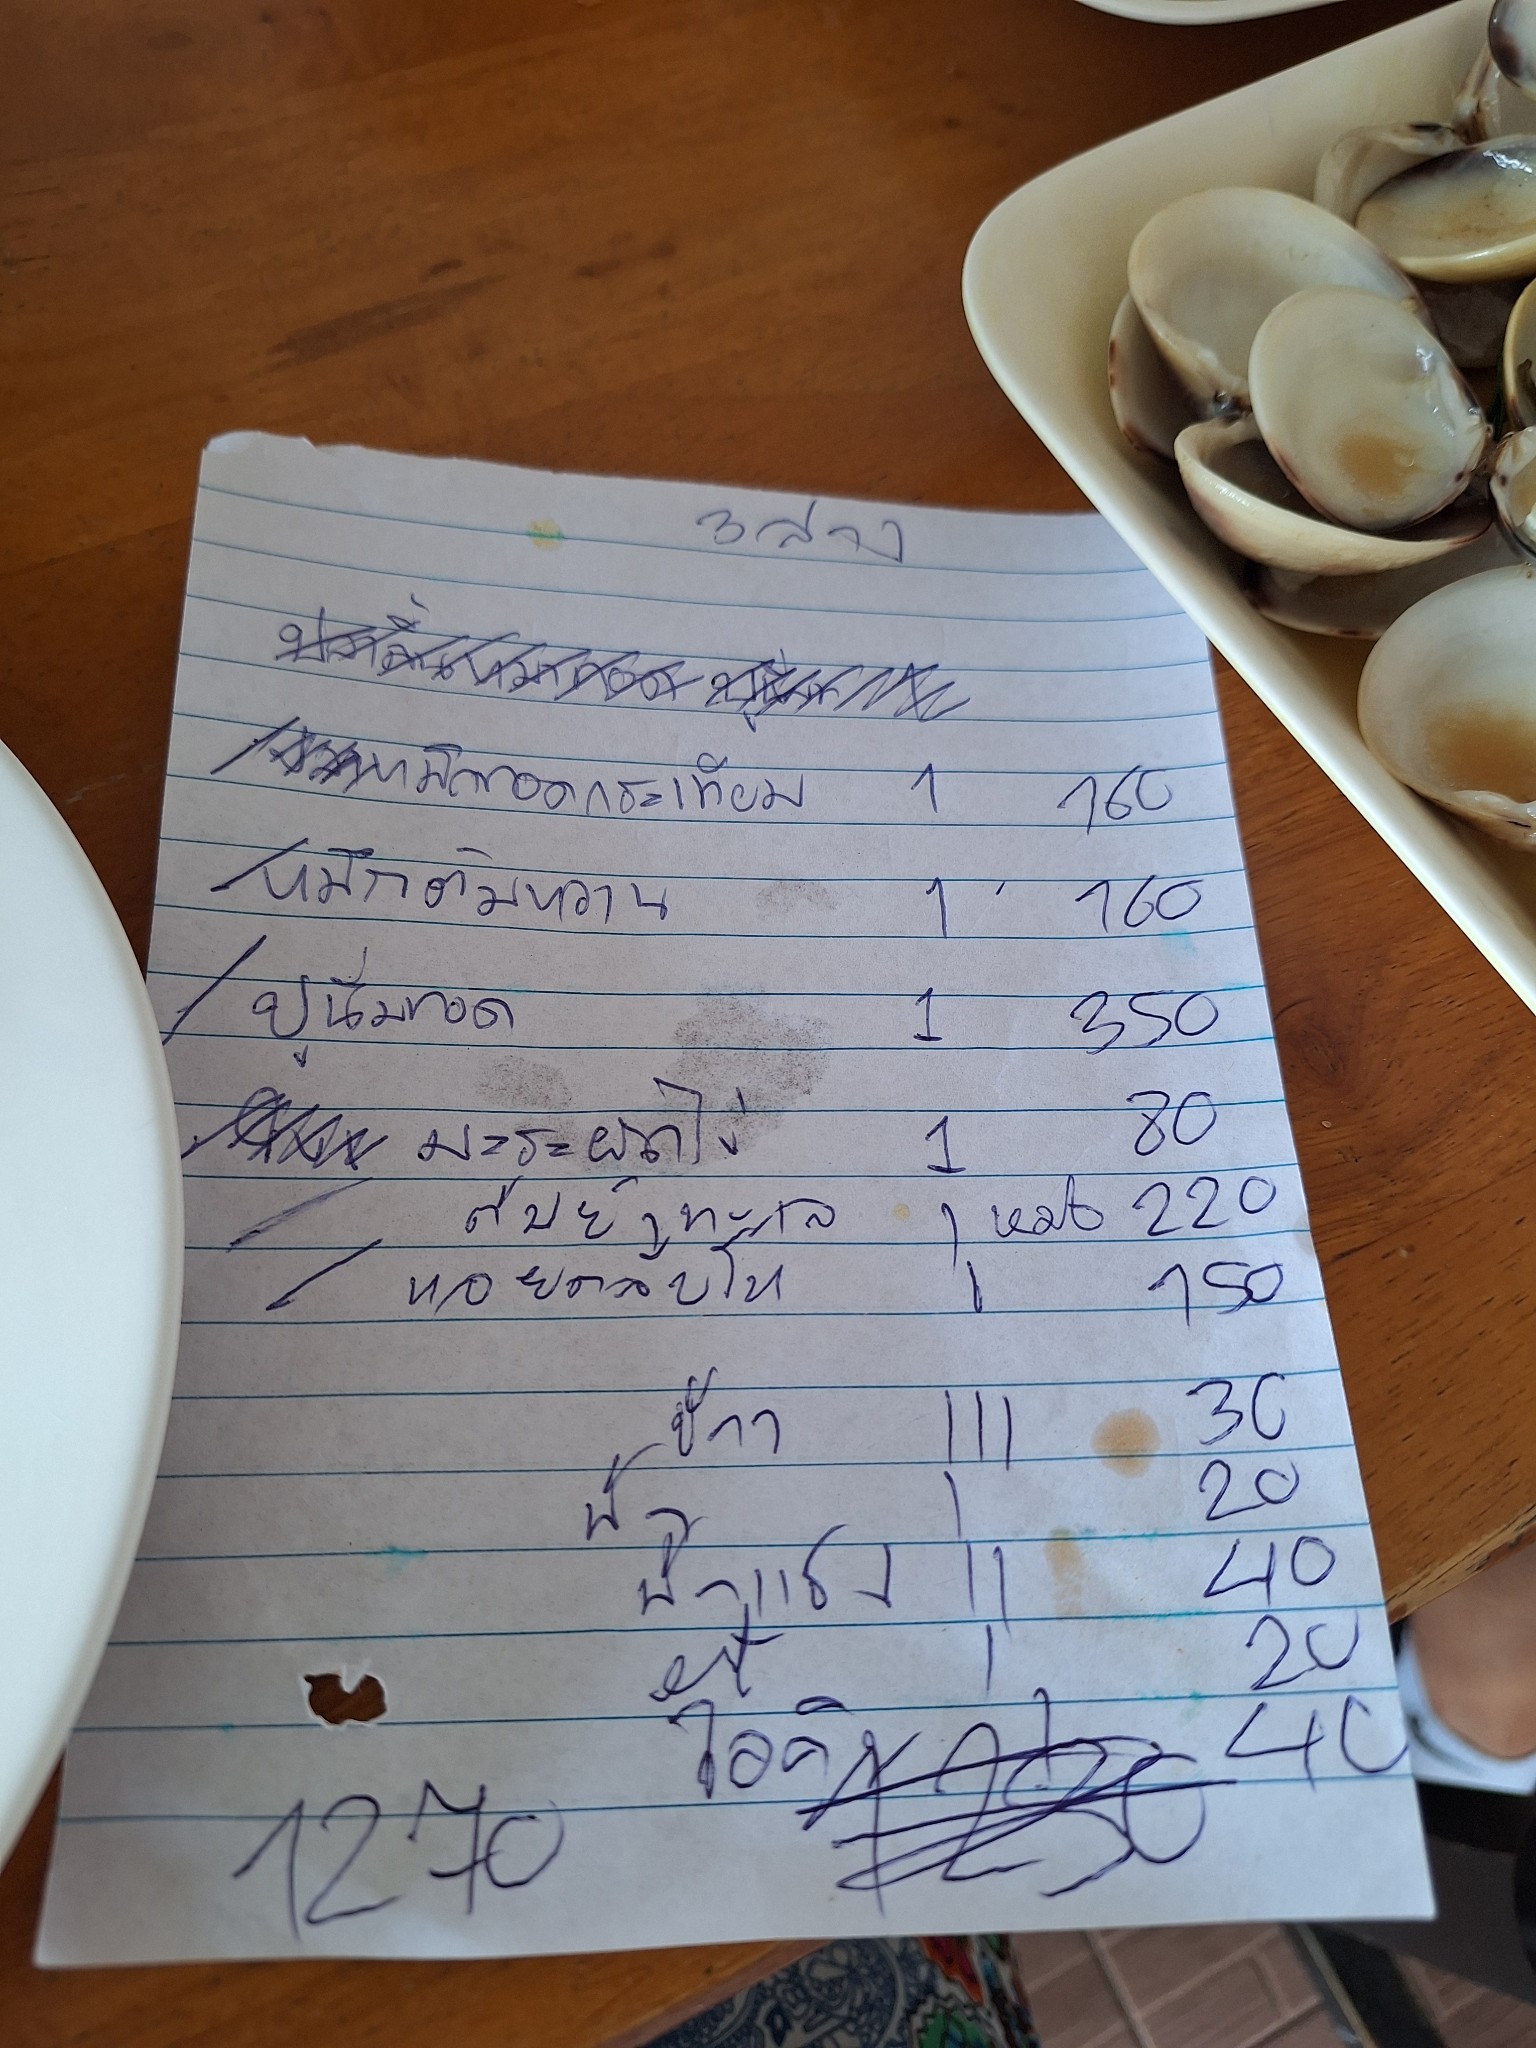 3 ล่าง
หมึกทอดกระเทียม 1 160
หมึกต้มหวาน 1 160
ปูนิ่มทอด 1 350
มะระผัดไข่ 1 80
ทะเล 1 หม้อ 220
หอยตลับโห 1 150
ข้าว ||| 30
น้ำ | 20
น้ำแข็ง || 40
| 20
40
1270